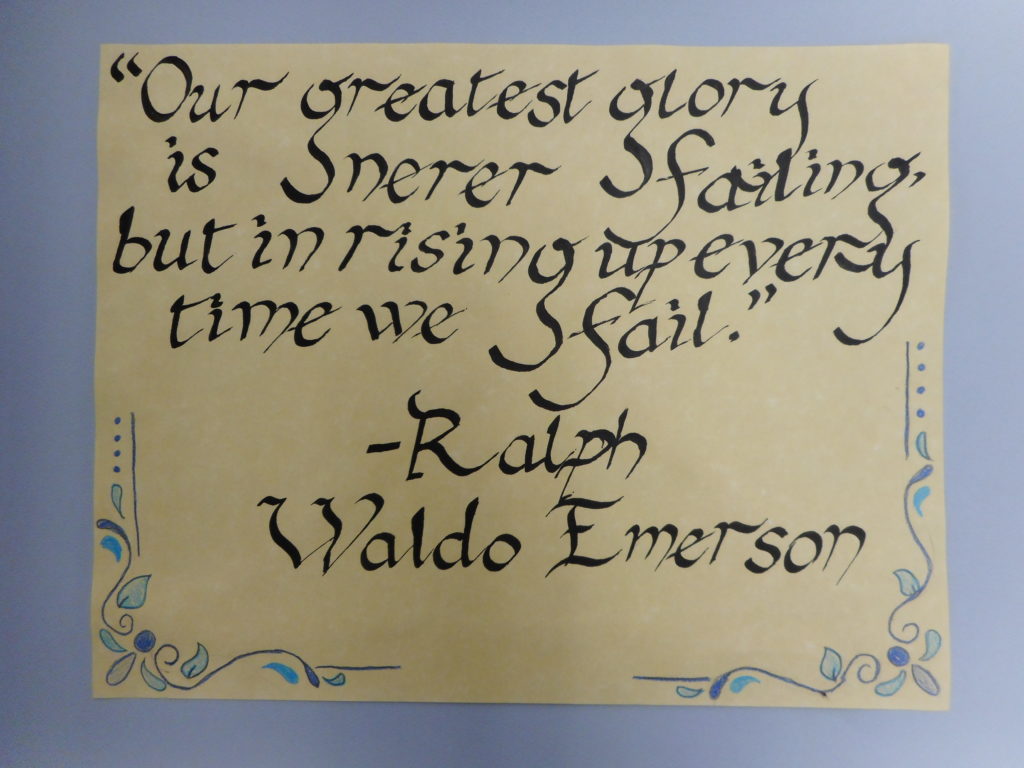 “Our greatest glory
is nerer failing,
but in rising up every
time we fail.”
-Ralph
Waldo Emerson